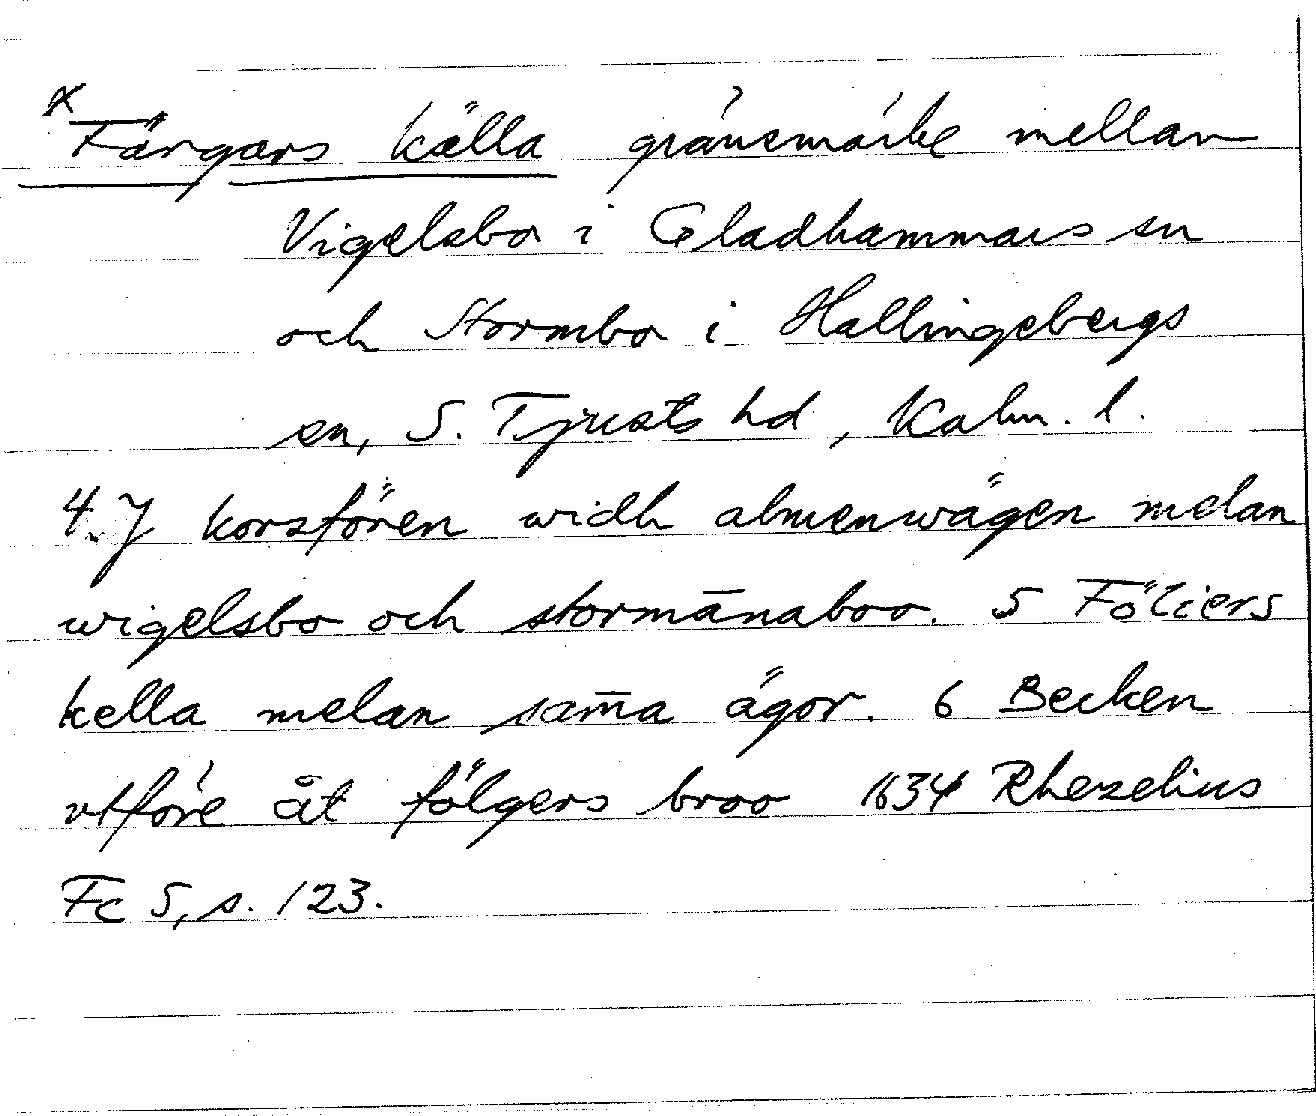 x Färgars källa gränsmärke mellan
Vigelsbo i Gladhammars sn
och Stormbo i Hallingebergs
sn, S. Tjusts hd, Kalm. l.
4. J korsfören widh almenwägen melan
wigelsbo och stormānaboo. 5 Föliers
kella melan sam̄a ägor. 6 Becken
vtföre åt fölgers broo 1634 Rhezelius
Fc 5, s. 123.